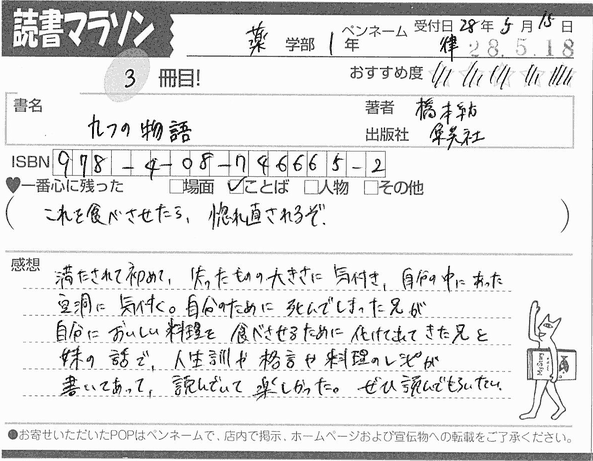 読書マラソン
薬 学部 1年 ペンネーム 律 受付日 28年5月15日
28.5.18
3 冊目!
おすすめ度
書名 九つの物語
著者 橋本紡
出版社 集英社
ISBN 978-4-08-746665-2
♥一番心に残った □場面 ☑ことば □人物 □その他
(これを食べさせたら、惚れ直されるぞ。)
感想
満たされて初めて、失ったものの大きさに気付き、自分の中にあった
空洞に気付く。自分のために死んでしまった兄が
自分においしい料理を食べさせるために化けて出てきた兄と
妹の話で、人生訓や格言や料理のレシピが
書いてあって、読んでいて楽しかった。ぜひ読んでもらいたい。
●お寄せいただいたPOPはペンネームで、店内で掲示、ホームページおよび宣伝物への転載をご了承ください。